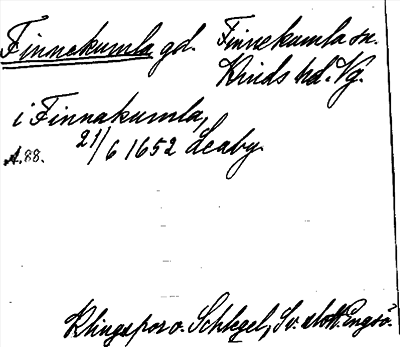 Finnekumla gd. Finnekumla sn.
Kinds hd. Vg.
i Finnakumla,
A.88. 21/6 1652 Leaby.
Klingspor o. Schlegel, Sv. slott. Engsö.